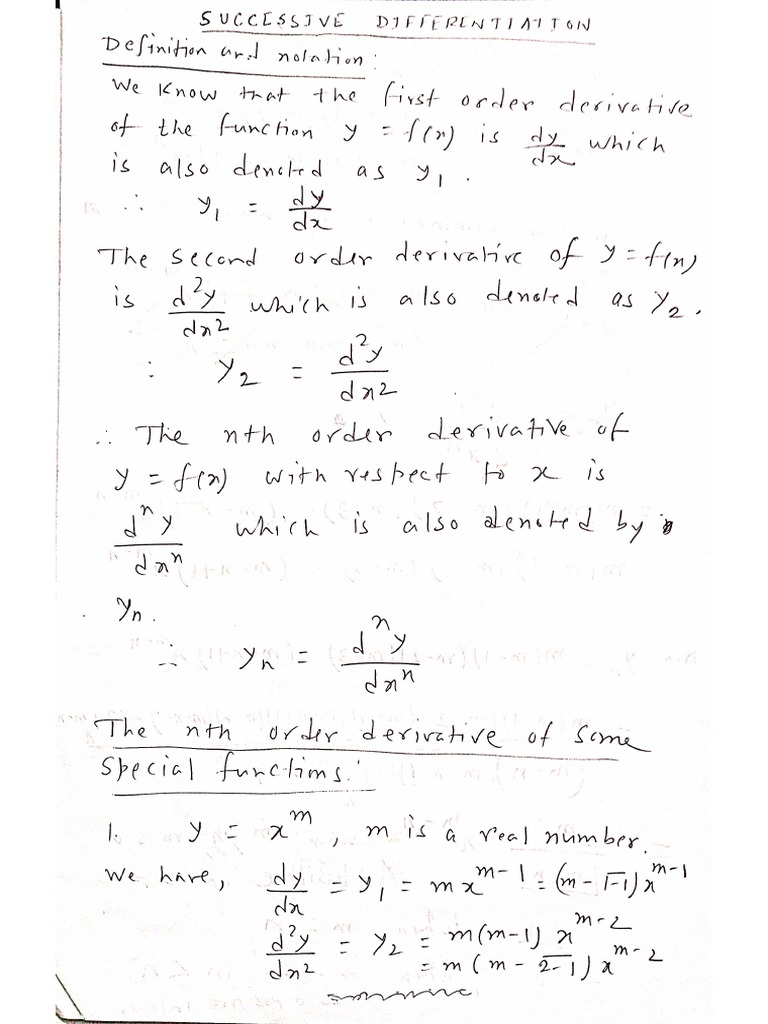 SUCCESSIVE DIFFERENTIATION
Definition and notation:
We know that the first order derivative
of the function y = f(x) is dy/dx which
is also denoted as y₁.
∴ y₁ = dy/dx
The second order derivative of y = f(x)
is d²y/dx² which is also denoted as y₂.
∴ y₂ = d²y/dx²
∴ The nth order derivative of
y = f(x) with respect to x is
dⁿy/dxⁿ which is also denoted by
yₙ.
∴ yₙ = dⁿy/dxⁿ
The nth order derivative of some
special functions:
1. y = xᵐ, m is a real number.
We have, dy/dx = y₁ = mxᵐ⁻¹ = (m - 1-1)xᵐ⁻¹
d²y/dx² = y₂ = m(m-1) xᵐ⁻²
= m(m - 2-1)xᵐ⁻²